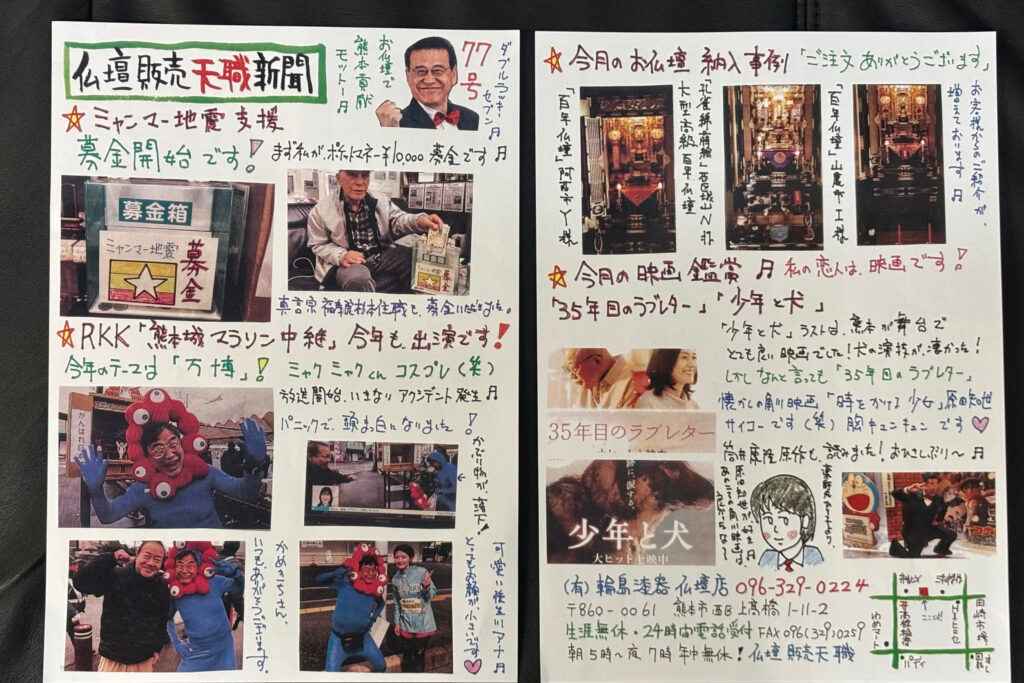 仏壇販売天職新聞
お仏壇で
熊本貢献
モットー♬
77号
ダブルラッキーセブン♬
☆ミャンマー地震支援
募金開始です!
まず私が、ポケットマネー¥10,000募金です♬
募金箱
ミャンマー地震
募金
募金箱
ミャンマー地震
募金
☆RKK「熊本城マラソン中継」今年も出演です!
今年のテーマは「万博」!
ミャクミャクくんコスプレ(笑)
放送開始、いきなりアクシデント発生♬
パニックで、頭ま白になりました!
かぶり物が、落下!
がんばれ
かめきちさん、
いつもありがとうございます。
可愛い後生川アナ♬
とってもお顔が、小さいです♡
☆今月のお仏壇納入事例「ご注文ありがとうございます」
お客様からのご紹介が、
増えております♬
「百年仏壇」山鹿市I様
大型高級百年仏壇
「百年仏壇」阿蘇市Y様
☆今月の映画鑑賞♬私の恋人は、映画です!
「35年目のラブレター」「少年と犬」
「少年と犬」ラストは、熊本が舞台で
とても良い映画でした!犬の演技が、凄かった!
しかしなんと言っても「35年目のラブレター」
懐かしの角川映画「時をかける少女」原田知世
サイコーです(笑)胸キュンキュンです♡
筒井康隆原作も、読みました!おひさしぶり〜♬
35年目のラブレター
少年と犬
大ヒット上映中
(有)輪島漆器仏壇店 096-329-0224
〒860-0061 熊本市西区上高橋1-11-2
生涯無休・24時間電話受付 FAX096(329)0259
朝5時〜夜7時年中無休!仏壇販売天職
田崎市場